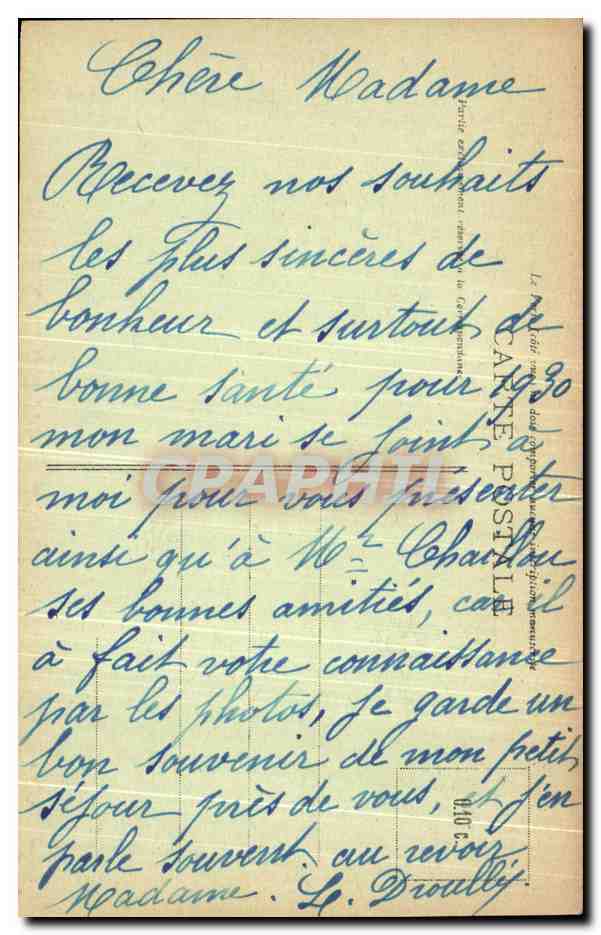 Chère Madame
Recevez nos souhaits
les plus sincères de
bonheur et surtout de
bonne santé pour 1930
mon mari se joint à
moi pour vous présenter
ainsi qu'à Mr
ses bonnes amitiés, car il
à fait votre connaissance
par les photos, je garde un
bon souvenir de mon petit
séjour près de vous, et j'en
parle souvent. au revoir
Madame.
CARTE POSTALE
Partie exclusivement réservée à la Correspondance
0.10 c.
CRAPHIL